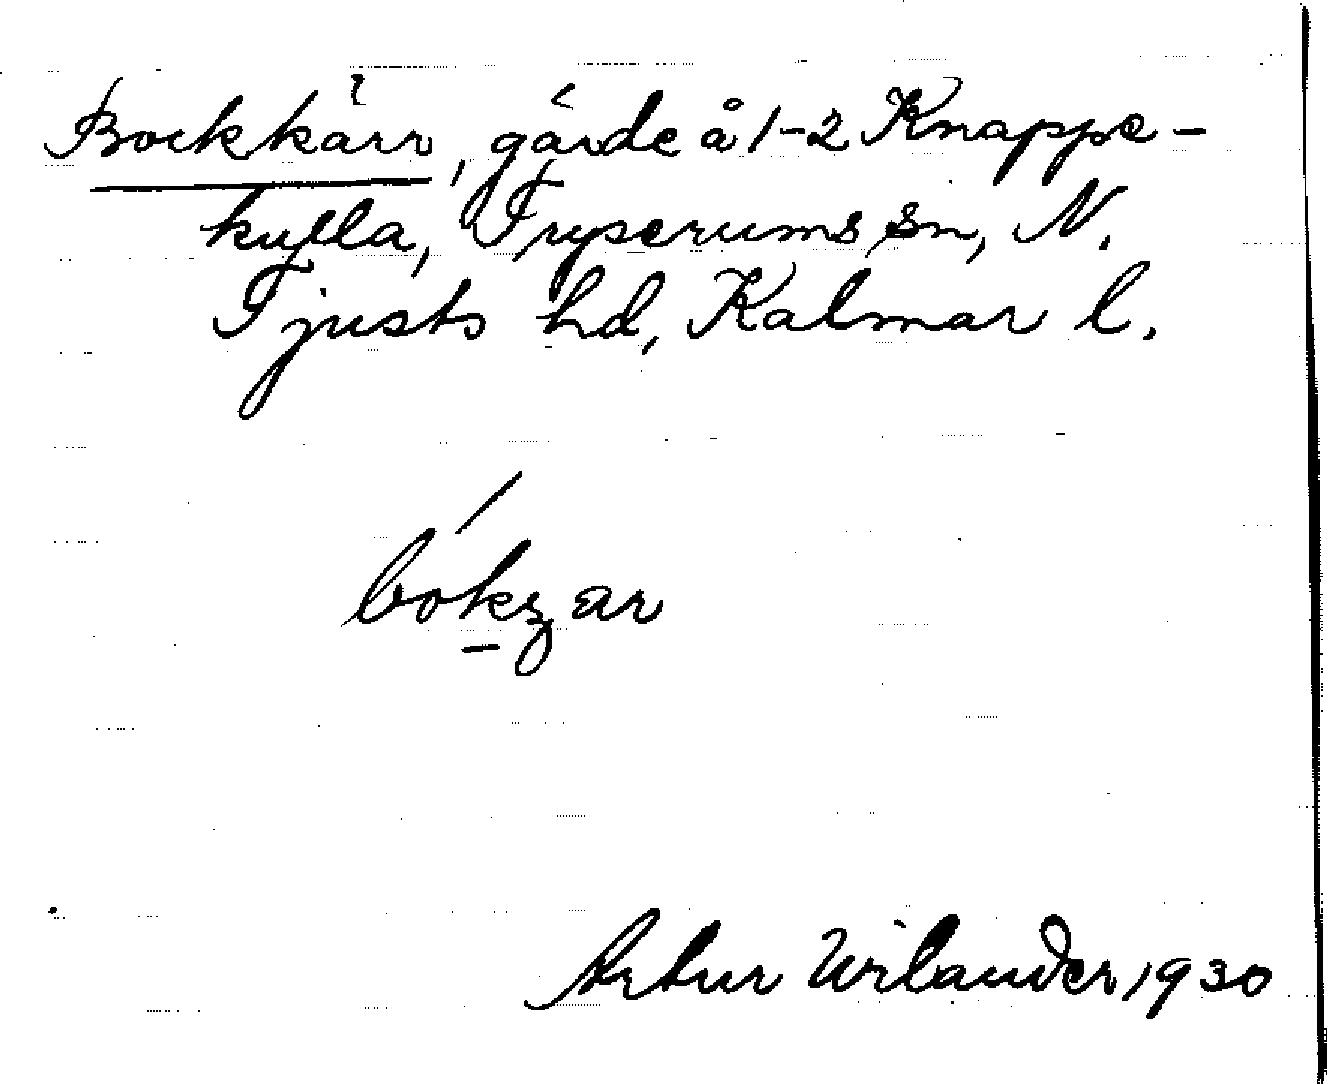 Bockkärr, gärde å 1-2 Knappe-
kulla, Tryserums sn, N.
Tjusts hd, Kalmar l.
Artur Wilander, 1930